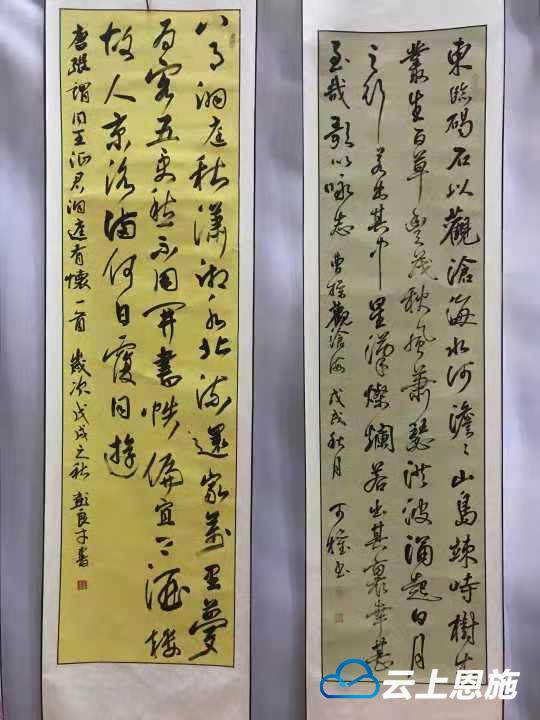 東臨碣石以觀滄海水何澹々山島竦峙樹木
叢生百草豐茂秋風蕭瑟洪波涌起日月
之行若出其中星漢燦爛若出其裏幸甚
至哉歌以咏志 曹操觀滄海 戊戌秋月 可 书
八月洞庭秋瀟湘水北流還家萬里夢
為客五更愁不用開書帙偏宜上酒樓
故人京洛滿何日復同遊
唐張謂同王征君洞庭有懷一首 歲次戊戌之秋 彭良才書
云上恩施